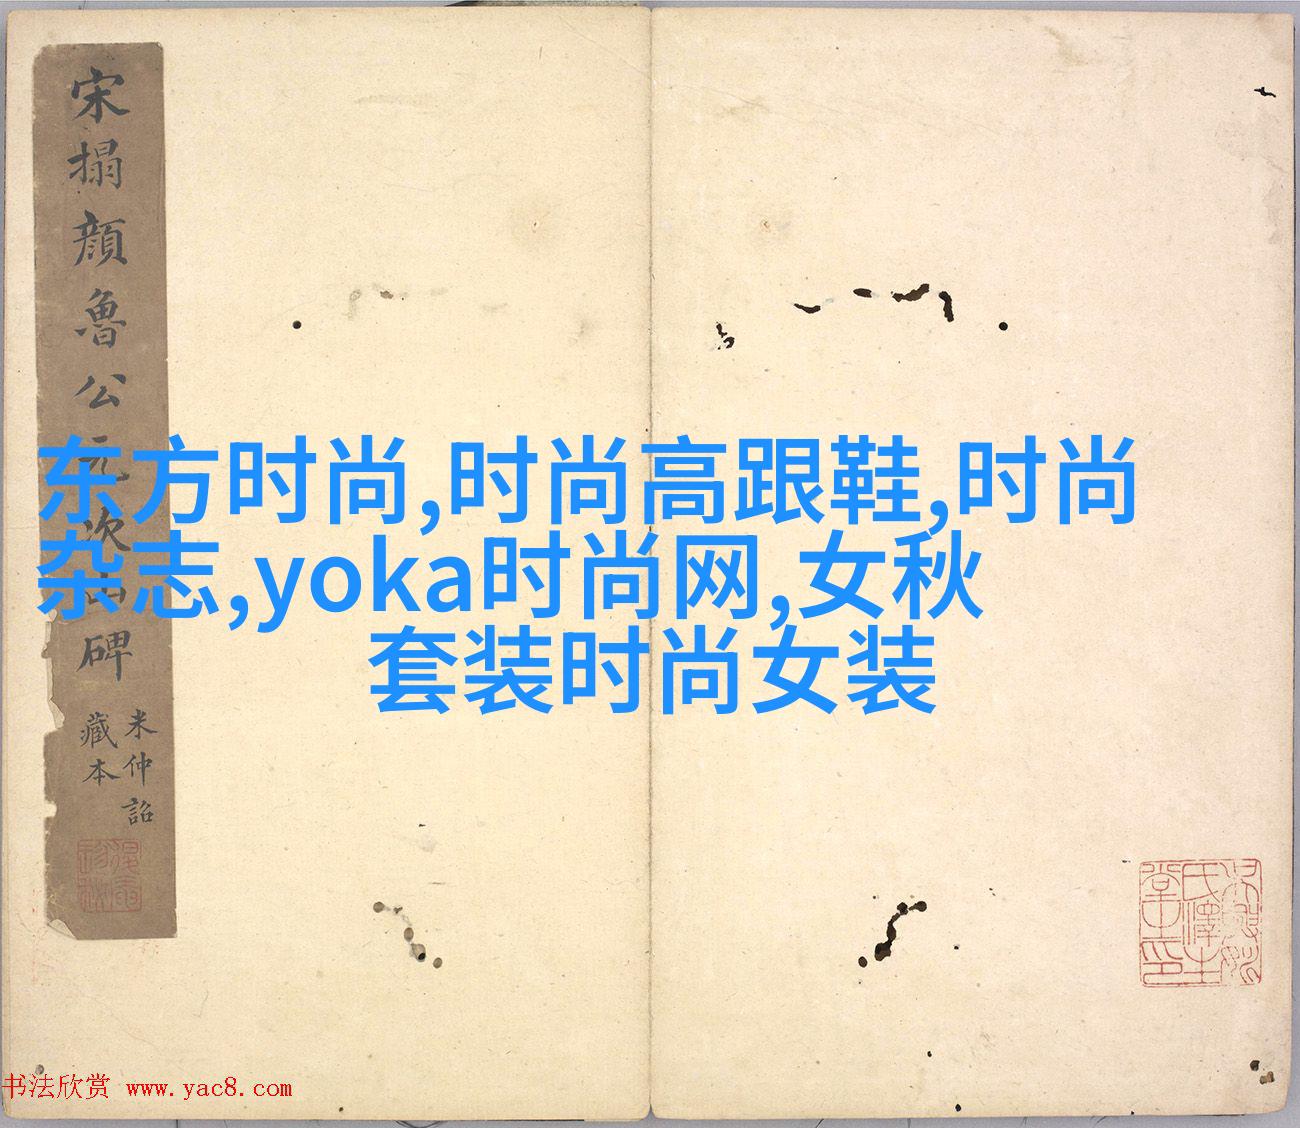 宋搨顏魯公元次山碑
米仲詔
藏本
东方时尚,时尚高跟鞋,时尚
杂志,yoka时尚网,女秋
套装时尚女装
书法欣赏 www.yac8.com